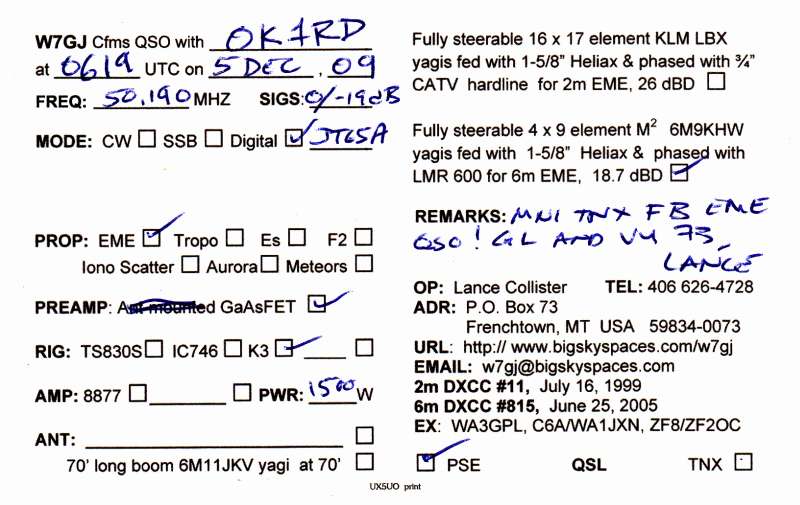 W7GJ Cfms QSO with OK1RD
at 0619 UTC on 5 DEC, 09
FREQ: 50.190 MHZ SIGS: O/-19dB
MODE: CW SSB Digital JT65A
PROP: EME Tropo Es F2
Iono Scatter Aurora Meteors
PREAMP: Ant mounted GaAsFET
RIG: TS830S IC746 K3
AMP: 8877 PWR: 1500 W
ANT:
70' long boom 6M11JKV yagi at 70'
Fully steerable 16 x 17 element KLM LBX
yagis fed with 1-5/8" Heliax & phased with ¾"
CATV hardline for 2m EME, 26 dBD
Fully steerable 4 x 9 element M² 6M9KHW
yagis fed with 1-5/8" Heliax & phased with
LMR 600 for 6m EME, 18.7 dBD
REMARKS: MNI TNX FB EME
QSO! GL AND VY 73,
LANCE
OP: Lance Collister TEL: 406 626-4728
ADR: P.O. Box 73
Frenchtown, MT USA 59834-0073
URL: http:// www.bigskyspaces.com/w7gj
EMAIL: w7gj@bigskyspaces.com
2m DXCC #11, July 16, 1999
6m DXCC #815, June 25, 2005
EX: WA3GPL, C6A/WA1JXN, ZF8/ZF2OC
PSE QSL TNX
UX5UO print